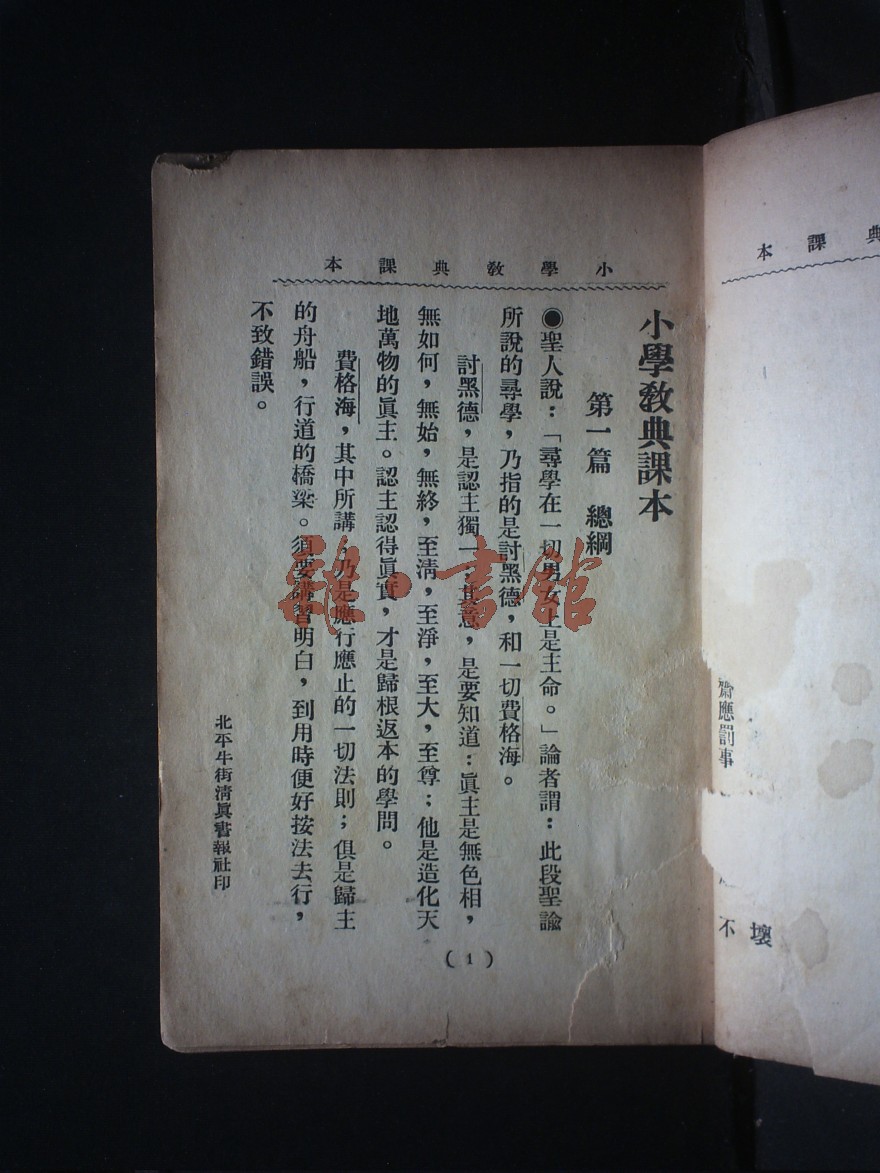 小學教典課本
小學教典課本
第一篇　總綱
◉聖人說：「尋學在一切男女上是主命。」論者謂：此段聖諭
所說的尋學，乃指的是討黑德，和一切費格海。
討黑德，是認主獨一，其意，是要知道：眞主是無色相，
無如何，無始，無終，至清，至淨，至大，至尊；他是造化天
地萬物的眞主。認主認得眞實，才是歸根返本的學問。
費格海，其中所講，乃是應行應止的一切法則；俱是歸主
的舟船，行道的橋梁。須要講習明白，到用時便好按法去行，
不致錯誤。
北平牛街清眞書報社印
(1)
雜·書館
典課本
齋應罰事
壞
不